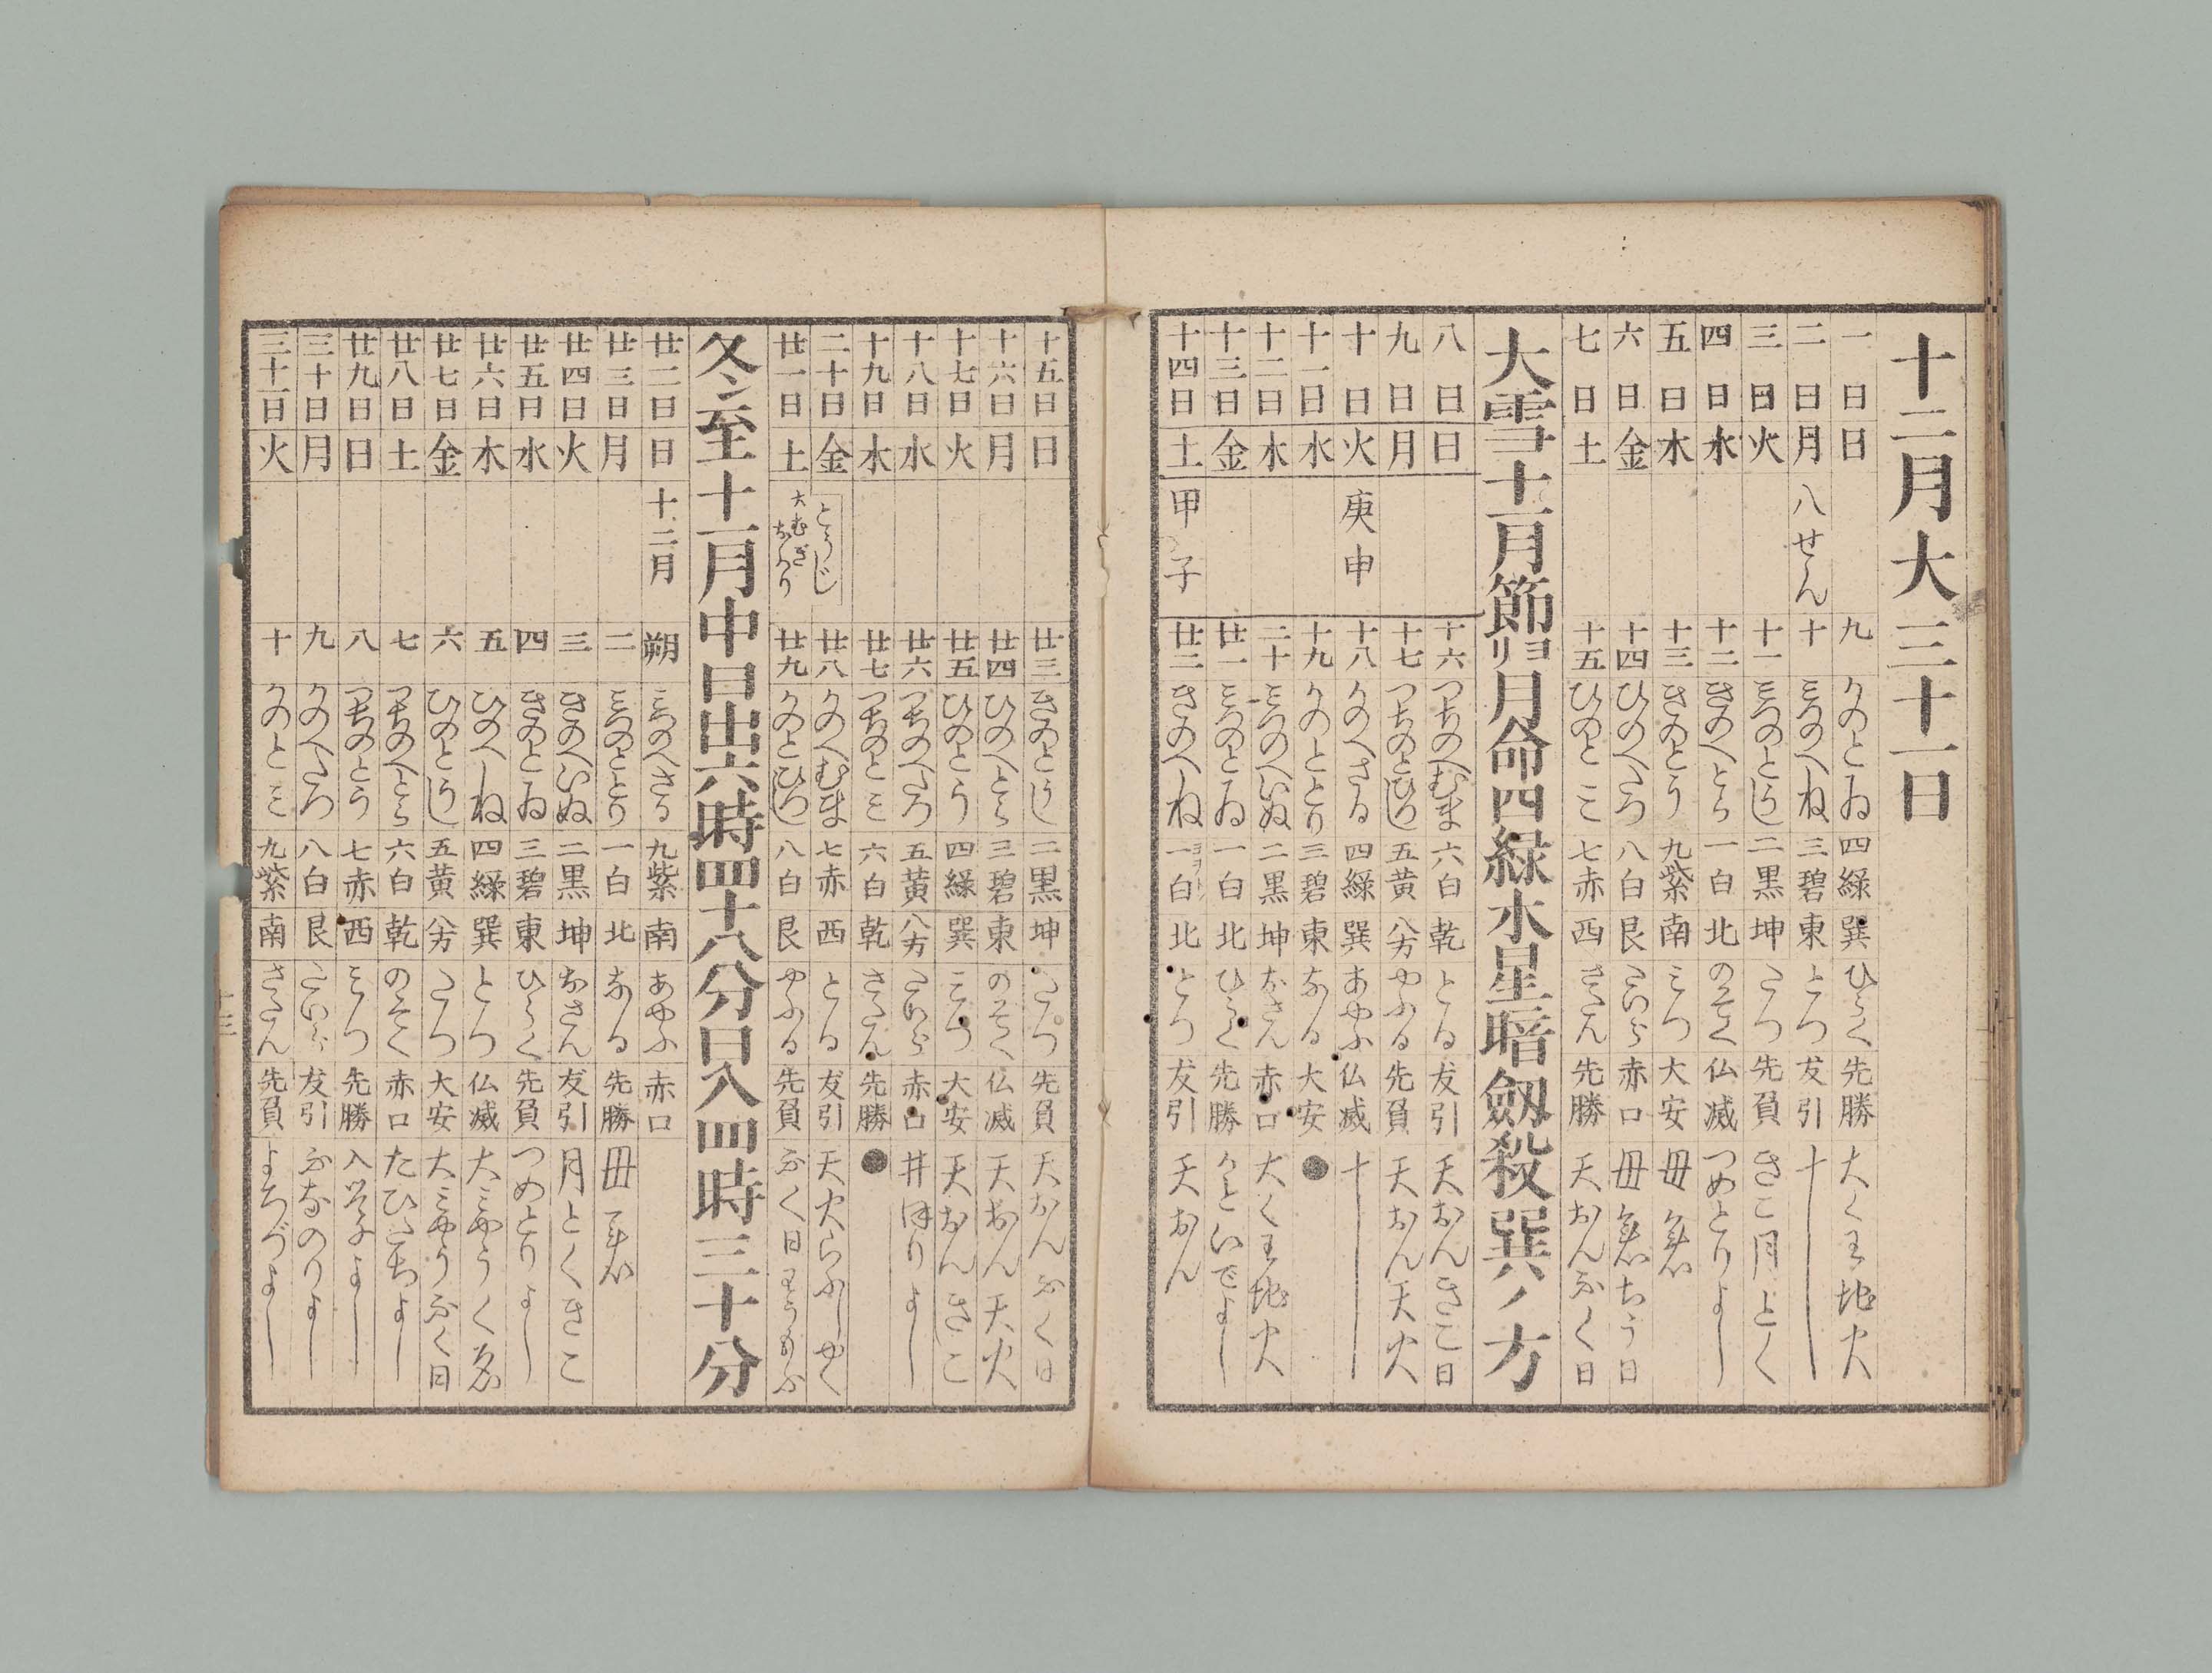 十二月大三十一日
一日 日 九 かのとゐ 四緑 巽 ひらく 先勝 大く王地火
二日 月 八せん 十 ミつのへね 三碧 東 とつ 友引 十
三日 火 十一 ミつのとうし 二黒 坤 たつ 先負 きこ月とく
四日 水 十二 きのへとら 一白 北 のそく 仏滅 つめとりよし
五日 木 十三 きのとう 九紫 南 ミつ 大安 毋
六日 金 十四 ひのへたつ 八白 艮 たいら 赤口 毋 ちう日
七日 土 十五 ひのとミ 七赤 西 さたん 先勝 天おんふく日
大雪十一月節ヨリ月命四緑水星暗劔殺巽ノ方
八日 日 十六 つちのへむま 六白 乾 とる 友引 天おんきこ日
九日 月 十七 つちのとひつし 五黄 八方 やふる 先負 天おん天火
十日 火 庚申 十八 かのへさる 四緑 巽 あやふ 仏滅 十
十一日 水 十九 かのととり 三碧 東 なる 大安 ●
十二日 木 二十 ミつのへいぬ 二黒 坤 おさん 赤口 大く王地火
十三日 金 廿一 ミつのとゐ 一白 北 ひらく 先勝 かといでよし
十四日 土 甲子 廿二 きのへね 一白 北 とつ 友引 天おん
十五日 日 廿三 きのとうし 二黒 坤 たつ 先負 天おんふく日
十六日 月 廿四 ひのへとら 三碧 東 のそく 仏滅 天おん天火
十七日 火 廿五 ひのとう 四緑 巽 ミつ 大安 天おんきこ
十八日 水 廿六 つちのへたつ 五黄 八方 たいら 赤口 井ほりよし
十九日 木 廿七 つちのとミ 六白 乾 さたん 先勝 ●
二十日 金 とうじ 廿八 かのへむま 七赤 西 とる 友引 天火らふしやく
廿一日 土 大むぎ 廿九 かのとひつし 八白 艮 やふる 先負 ふく日
冬至十一月中日出六時四十八分日入四時三十分
廿二日 日 十二月 朔 ミつのへさる 九紫 南 あやふ 赤口
廿三日 月 二 ミつのととり 一白 北 なる 先勝 毋
廿四日 火 三 きのへいぬ 二黒 坤 おさん 友引 月とくきこ
廿五日 水 四 きのとゐ 三碧 東 ひらく 先負 つめとりよし
廿六日 木 五 ひのへね 四緑 巽 とつ 仏滅 大ミやうく
廿七日 金 六 ひのとうし 五黄 八方 たつ 大安 大ミやうふく日
廿八日 土 七 つちのへとら 六白 乾 のそく 赤口 たひたちよし
廿九日 日 八 つちのとう 七赤 西 ミつ 先勝 入学よし
三十日 月 九 かのへたつ 八白 艮 たいら 友引 ふなのりよし
三十一日 火 十 かのとミ 九紫 南 さたん 先負 よろづよし
十三